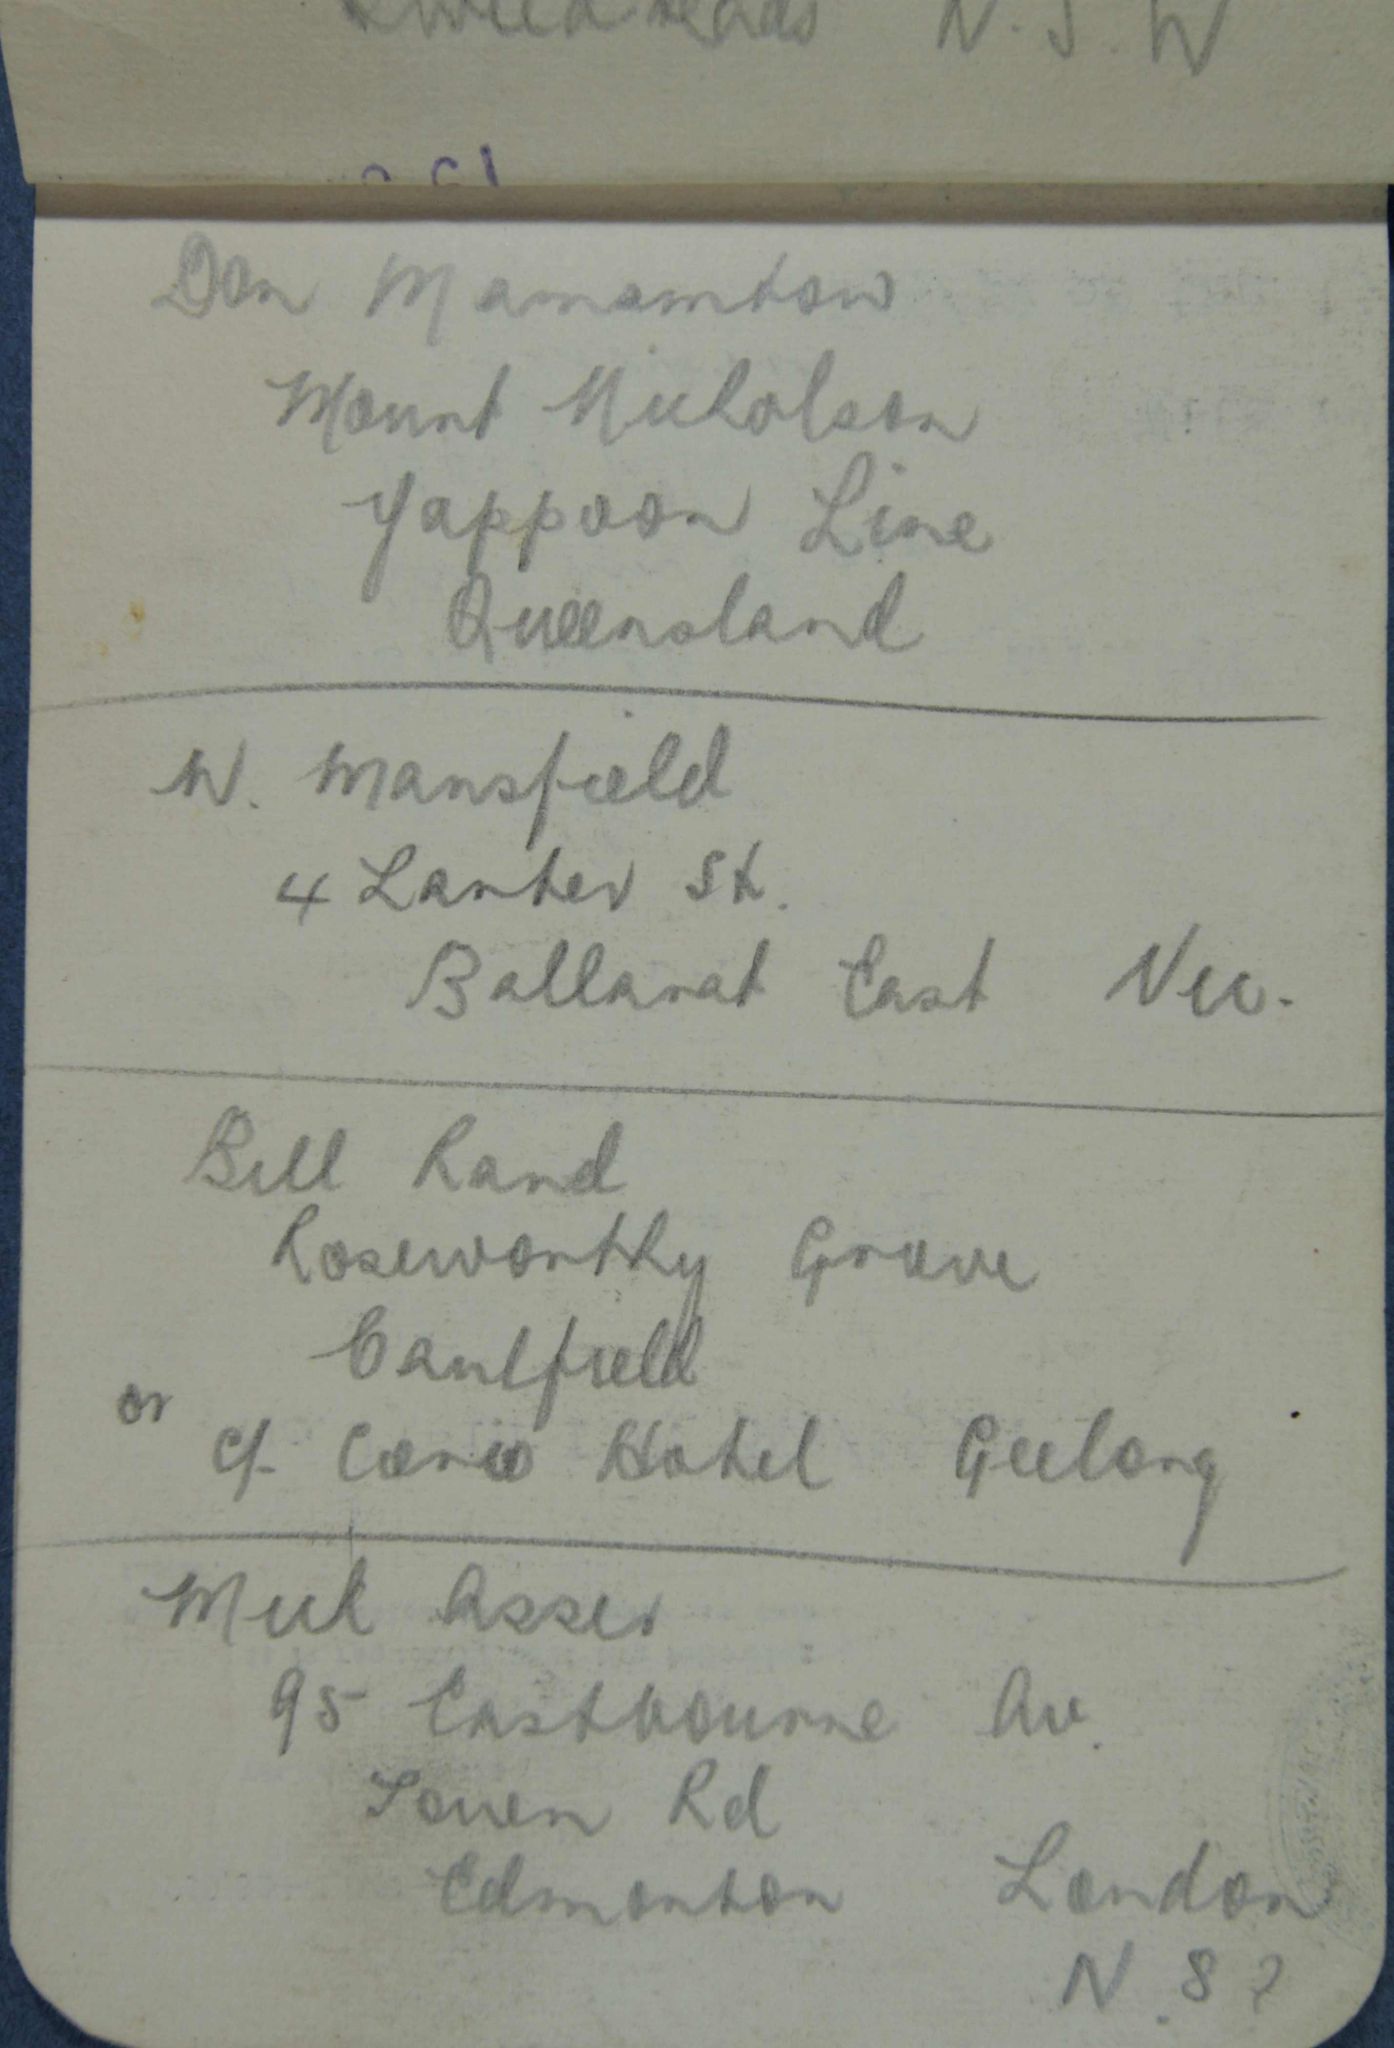 Tweed Heads N.S.W
Don Mamamtow
Mount Nicholson
Yappoon Line
Queensland
W. Mansfield
4 Larter St.
Ballarat East Vic.
Bill Rand
Roseworthy Grove
Caulfield
or
c/- Corio Hotel Geelong
Mick Asser
95 Eastbourne Av.
Town Rd
Edmonton London
N. 8?